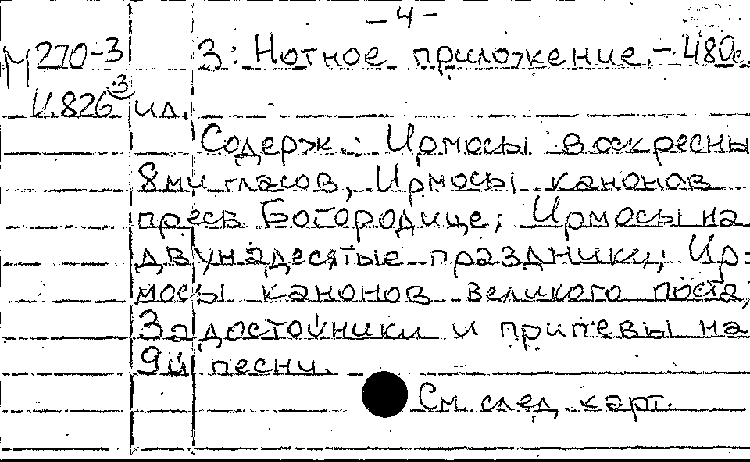 - 4 -
М270-3 3: Нотное приложение. - 480с.
И.826³ ил.
Содерж.: Ирмосы воскресны
8ми гласов, Ирмосы канонов
пресв Богородице; Ирмосы на
двунадесятые праздники; Ир-
мосы канонов великого поста;
Задостойники и припевы на
9й песни.
См. след. карт.